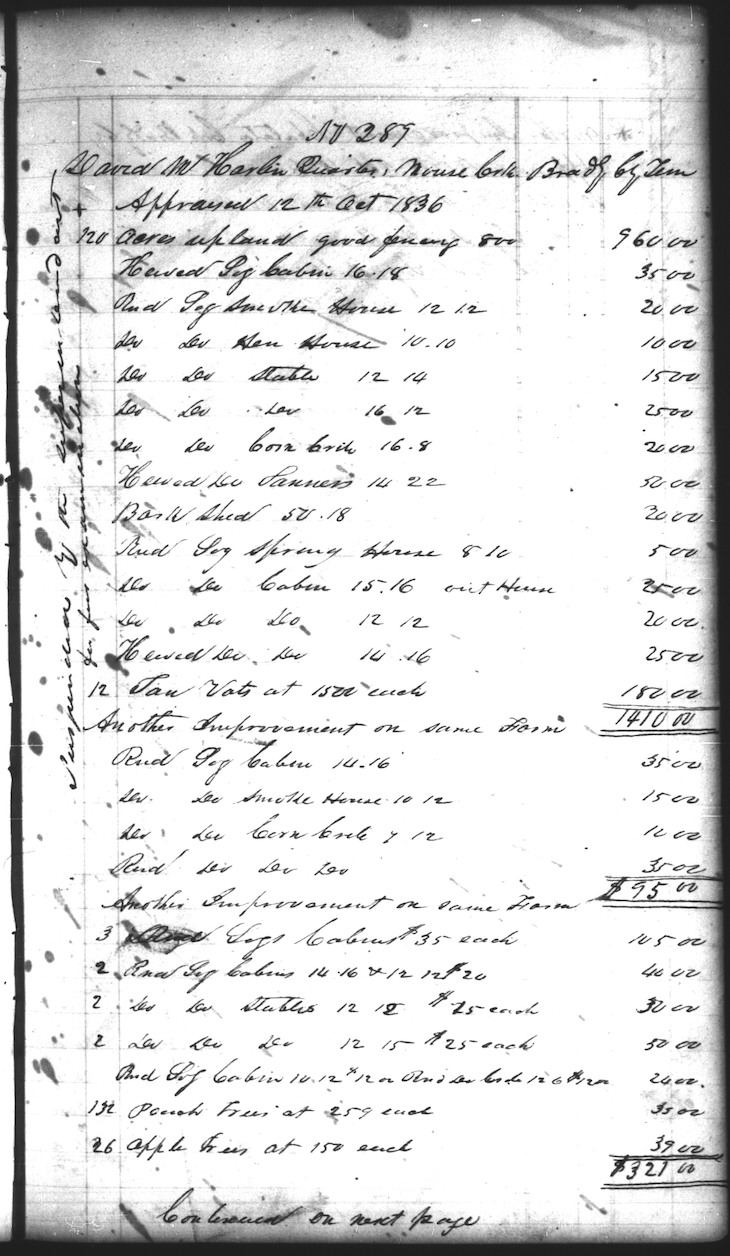 No 289
David McHarlin Quarter, Mouse Crk. Bradly Cty Tenn
Appraised 12th Oct 1836
120 Acres upland good fencing 800 960 00
Hewed Log Cabin 16.18 35 00
Rnd Log Smoke House 12 12 20 00
Do Do Hen House 10.10 10 00
Do Do Stable 12 14 15 00
Do Do Do 16 12 25 00
Do Do Corn Crib 16.8 20 00
Hewed Do Tanners 14 22 50 00
Bark Shed 50.18 20 00
Rnd Log Spring House 8 10 5 00
Do Do Cabin 15.16 out House 25 00
Do Do Do 12 12 20 00
Hewed Do Do 14.16 25 00
12 Tan Vats at 1500 each 180 00
1410 00
Another Improvement on same Farm
Rnd Log Cabin 14.16 35 00
Do Do Smoke House 10 12 15 00
Do Do Corn Crib 7 12 10 00
Rnd Do Do Do 35 00
$95 00
Another Improvement on same Farm
3 Logs Cabins $35 each 105 00
2 Rnd Log Cabins 14.16 & 12 12 $20 40 00
2 Do Do Stables 12 12 $15 each 30 00
2 Do Do Do 12 15 $25 each 50 00
Rnd Log Cabin 10.12 $12 00 Rnd Do Crib 12 6 $12 00 24 00
132 Peach Trees at 25 each 33 00
26 Apple Trees at 150 each 39 00
$321 00
Continued on next page
Suspended
for further examination